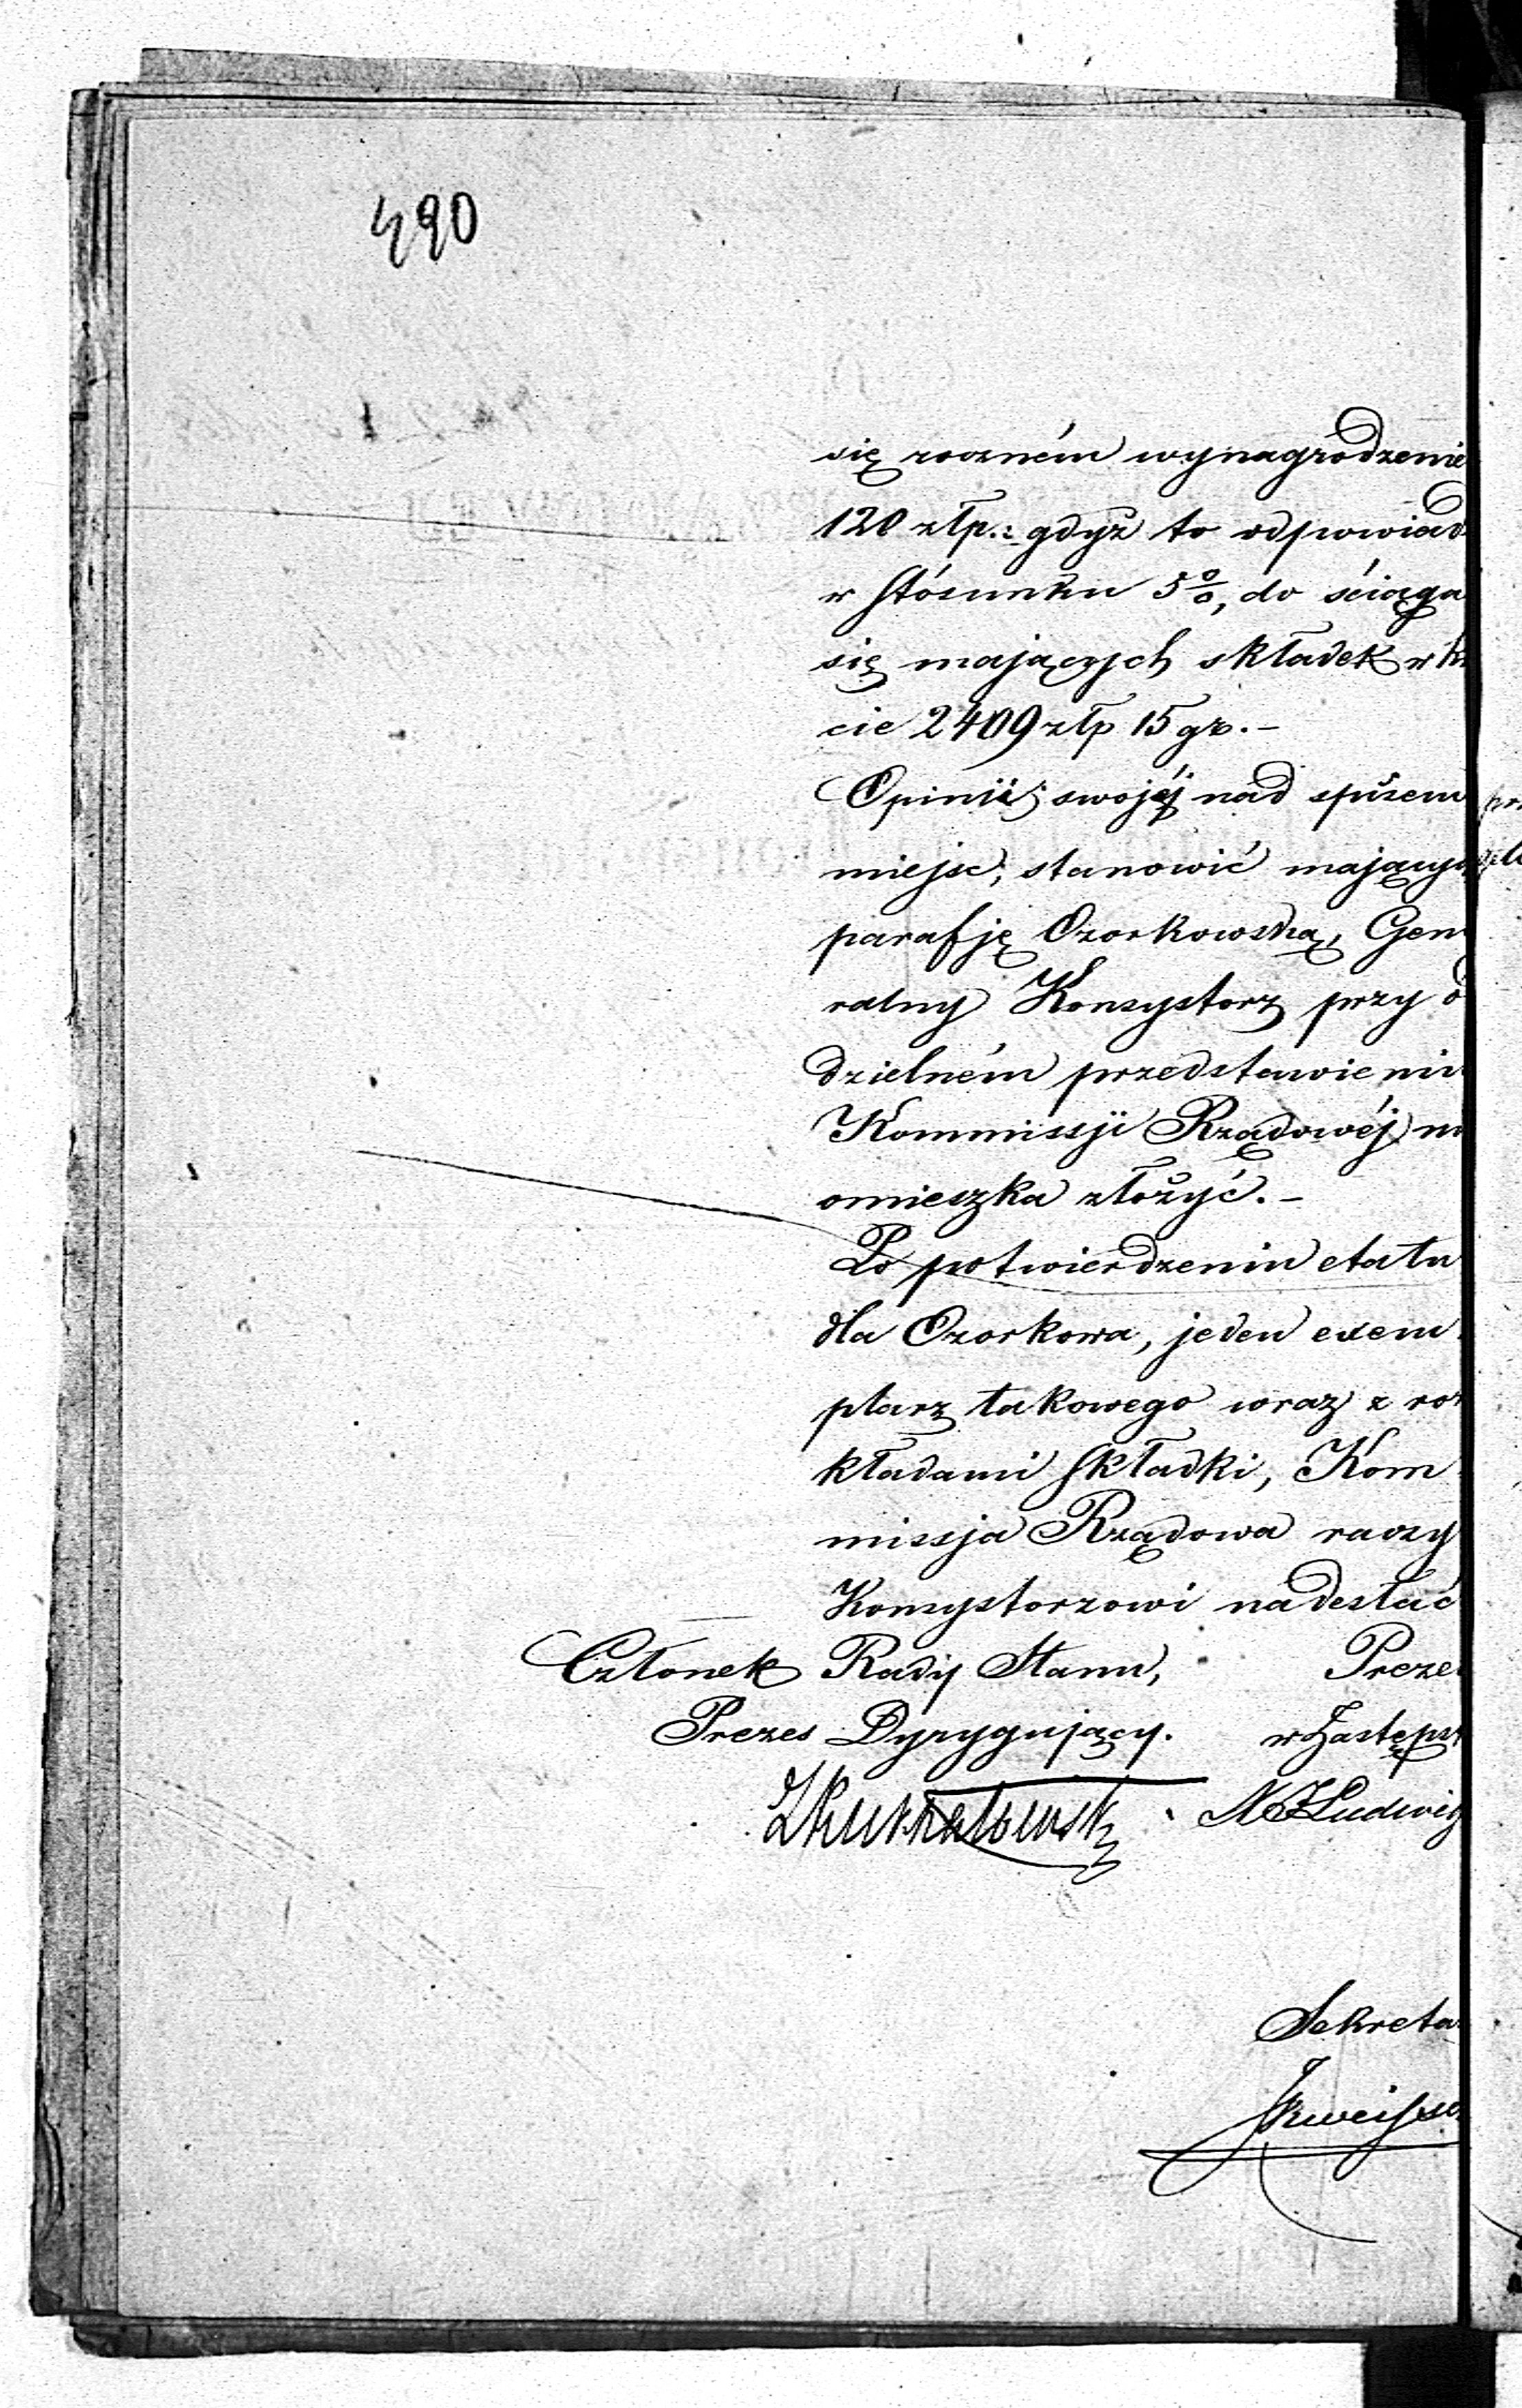 490
się roczném wynagrodzenie
120 złp.: gdyż to odpowiad
w stósunku 5%, do ściąga
się mających składek w k
cie 2409 złp 15 gr.-
Opinii swojéj nad spisem
miejsc, stanowić mający
parafję Ozorkowską, Gene
ralny Konsystorz przy o
dzielném przedstawieniu
Kommissji Rządowéj ni
omieszka złożyć.-
Po potwierdzeniu etatu
dla Ozorkowa, jeden exem
plarz takowego wraz z roz
kładami składki, Kom
missja Rządowa raczy
Konsystorzowi nadesłać
Członek Rady Stanu, Preze
Prezes Dyrygujący. w Zastępst
Ludwig
Sekreta